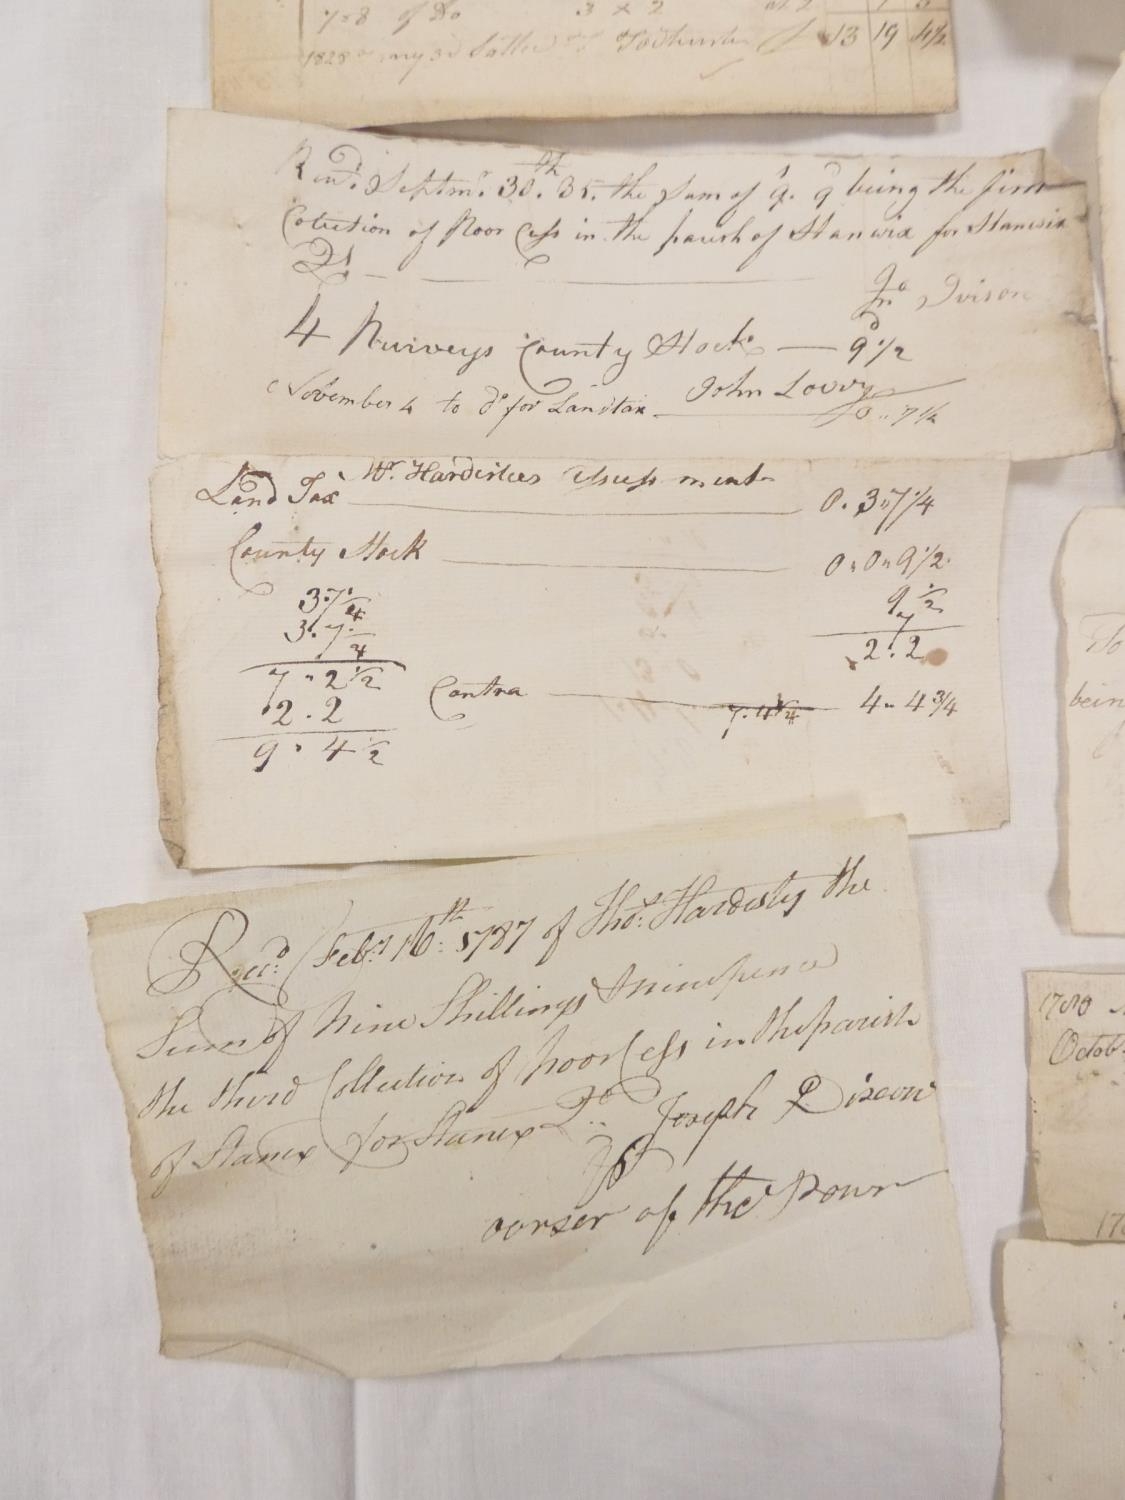 768 of Do 3 x 2
1828 my 13 19 4½
Recd. Septmr. 30th. 35. the Sum of 9s. 9d being the firs
Colection of Poor Cess in the parish of Stanwix for Stanwix
Qr
Jno Ivison
4 Purveys County Stock — 9d½
November 4 to do for Landtax John Lowry 0 .. 7½
Wm. Hardistees Assessment
Land Tax 0. 3 " 7¼
County Stock 0 " 0 " 9½
3. 7. ¼ 9 ½
3. 7. ¼ 7
7 " 2 ½ 2 . 2
Contra 7. 4¼ 4 " 4¾
2 . 2
9 . 4 ½
Recd. Febry 16th: 1787 of Thos. Hardisty the
Sum of Nine Shillings & ninepence
the third Collection of poor Cess in the parish
of Stanex for Stanex Qr. Joseph Dixon
of the
To
bein
1780
Octob